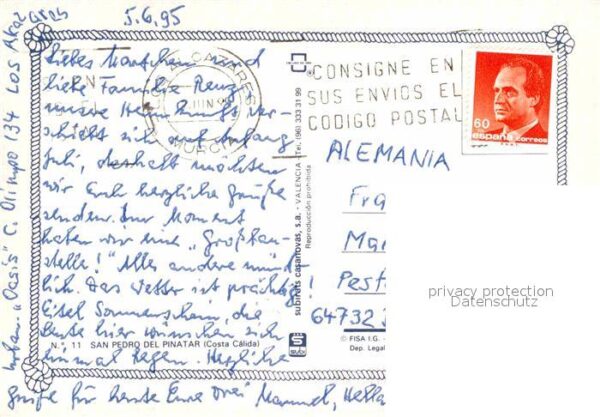 5.6.95
Urban. "Oasis" C. Olimpo 134 LOS Alcazares
Liebes Mariechen und
liebe Familie Renz,
unsere
schiebt sich auf Anfang
Juli, deshalb möchten
wir Euch herzliche Grüße
senden. Im Moment
haben wir eine "Großbau-
stelle!" Alles andere münd-
lich. Das Wetter ist prächtig!
Eitel Sonnenschein, die
Leute hier wünschen sich
einmal Regen. Herzliche
Grüße für heute Eure Drei Manuel, Hella
CAZARES
JUN
MURCIA
CONSIGNE EN
SUS ENVIOS EL
CODIGO POSTAL
60
españa correos
ALEMANIA
Fra
Mar
Pesta
64732
subirats casanovas, s.a. - VALENCIA - Tel. (96) 333 31 99
Reproducción prohibida
N.º 11 SAN PEDRO DEL PINATAR (Costa Cálida)
© FISA I.G. -
Dep. Legal
privacy protection
Datenschutz